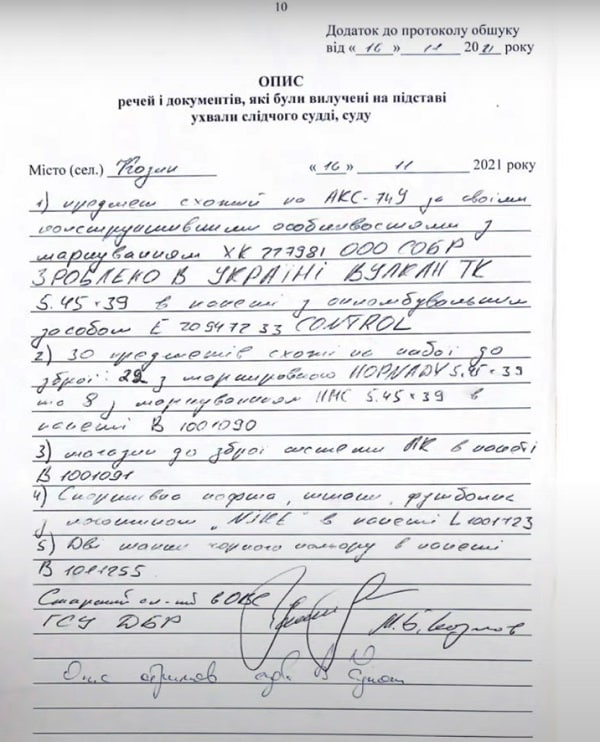 10
Додаток до протоколу обшуку
від « 16 » 11 2021 року
ОПИС
речей і документів, які були вилучені на підставі
ухвали слідчого судді, суду
Місто (сел.) Козин « 16 » 11 2021 року
1) предмет схожий на АКС-74У за своїми
конструктивними особливостями з
маркуванням ХК 777981 ООО СОБР
ЗРОБЛЕНО В УКРАЇНІ ВУЛКАН ТК
5.45×39 в пакеті з опломбувальним
засобом Е 20947233 CONTROL
2) 30 предметів схожі на набої до
зброї: 22 з маркуванням HORNADY 5.45×39
та 8 з маркуванням НМС 5.45×39 в
пакеті В 1001090
3) магазин до зброї системи АК в пакеті
В 1001091
4) Спортивна кофта, штани, футболка
з логотипом „NIKE" в пакеті L1001723
5) Дві шапки чорного кольору в пакеті
В 1011255
Старший сл-ий в ОВС
ГСУ ДБР
Опис отримав адв.